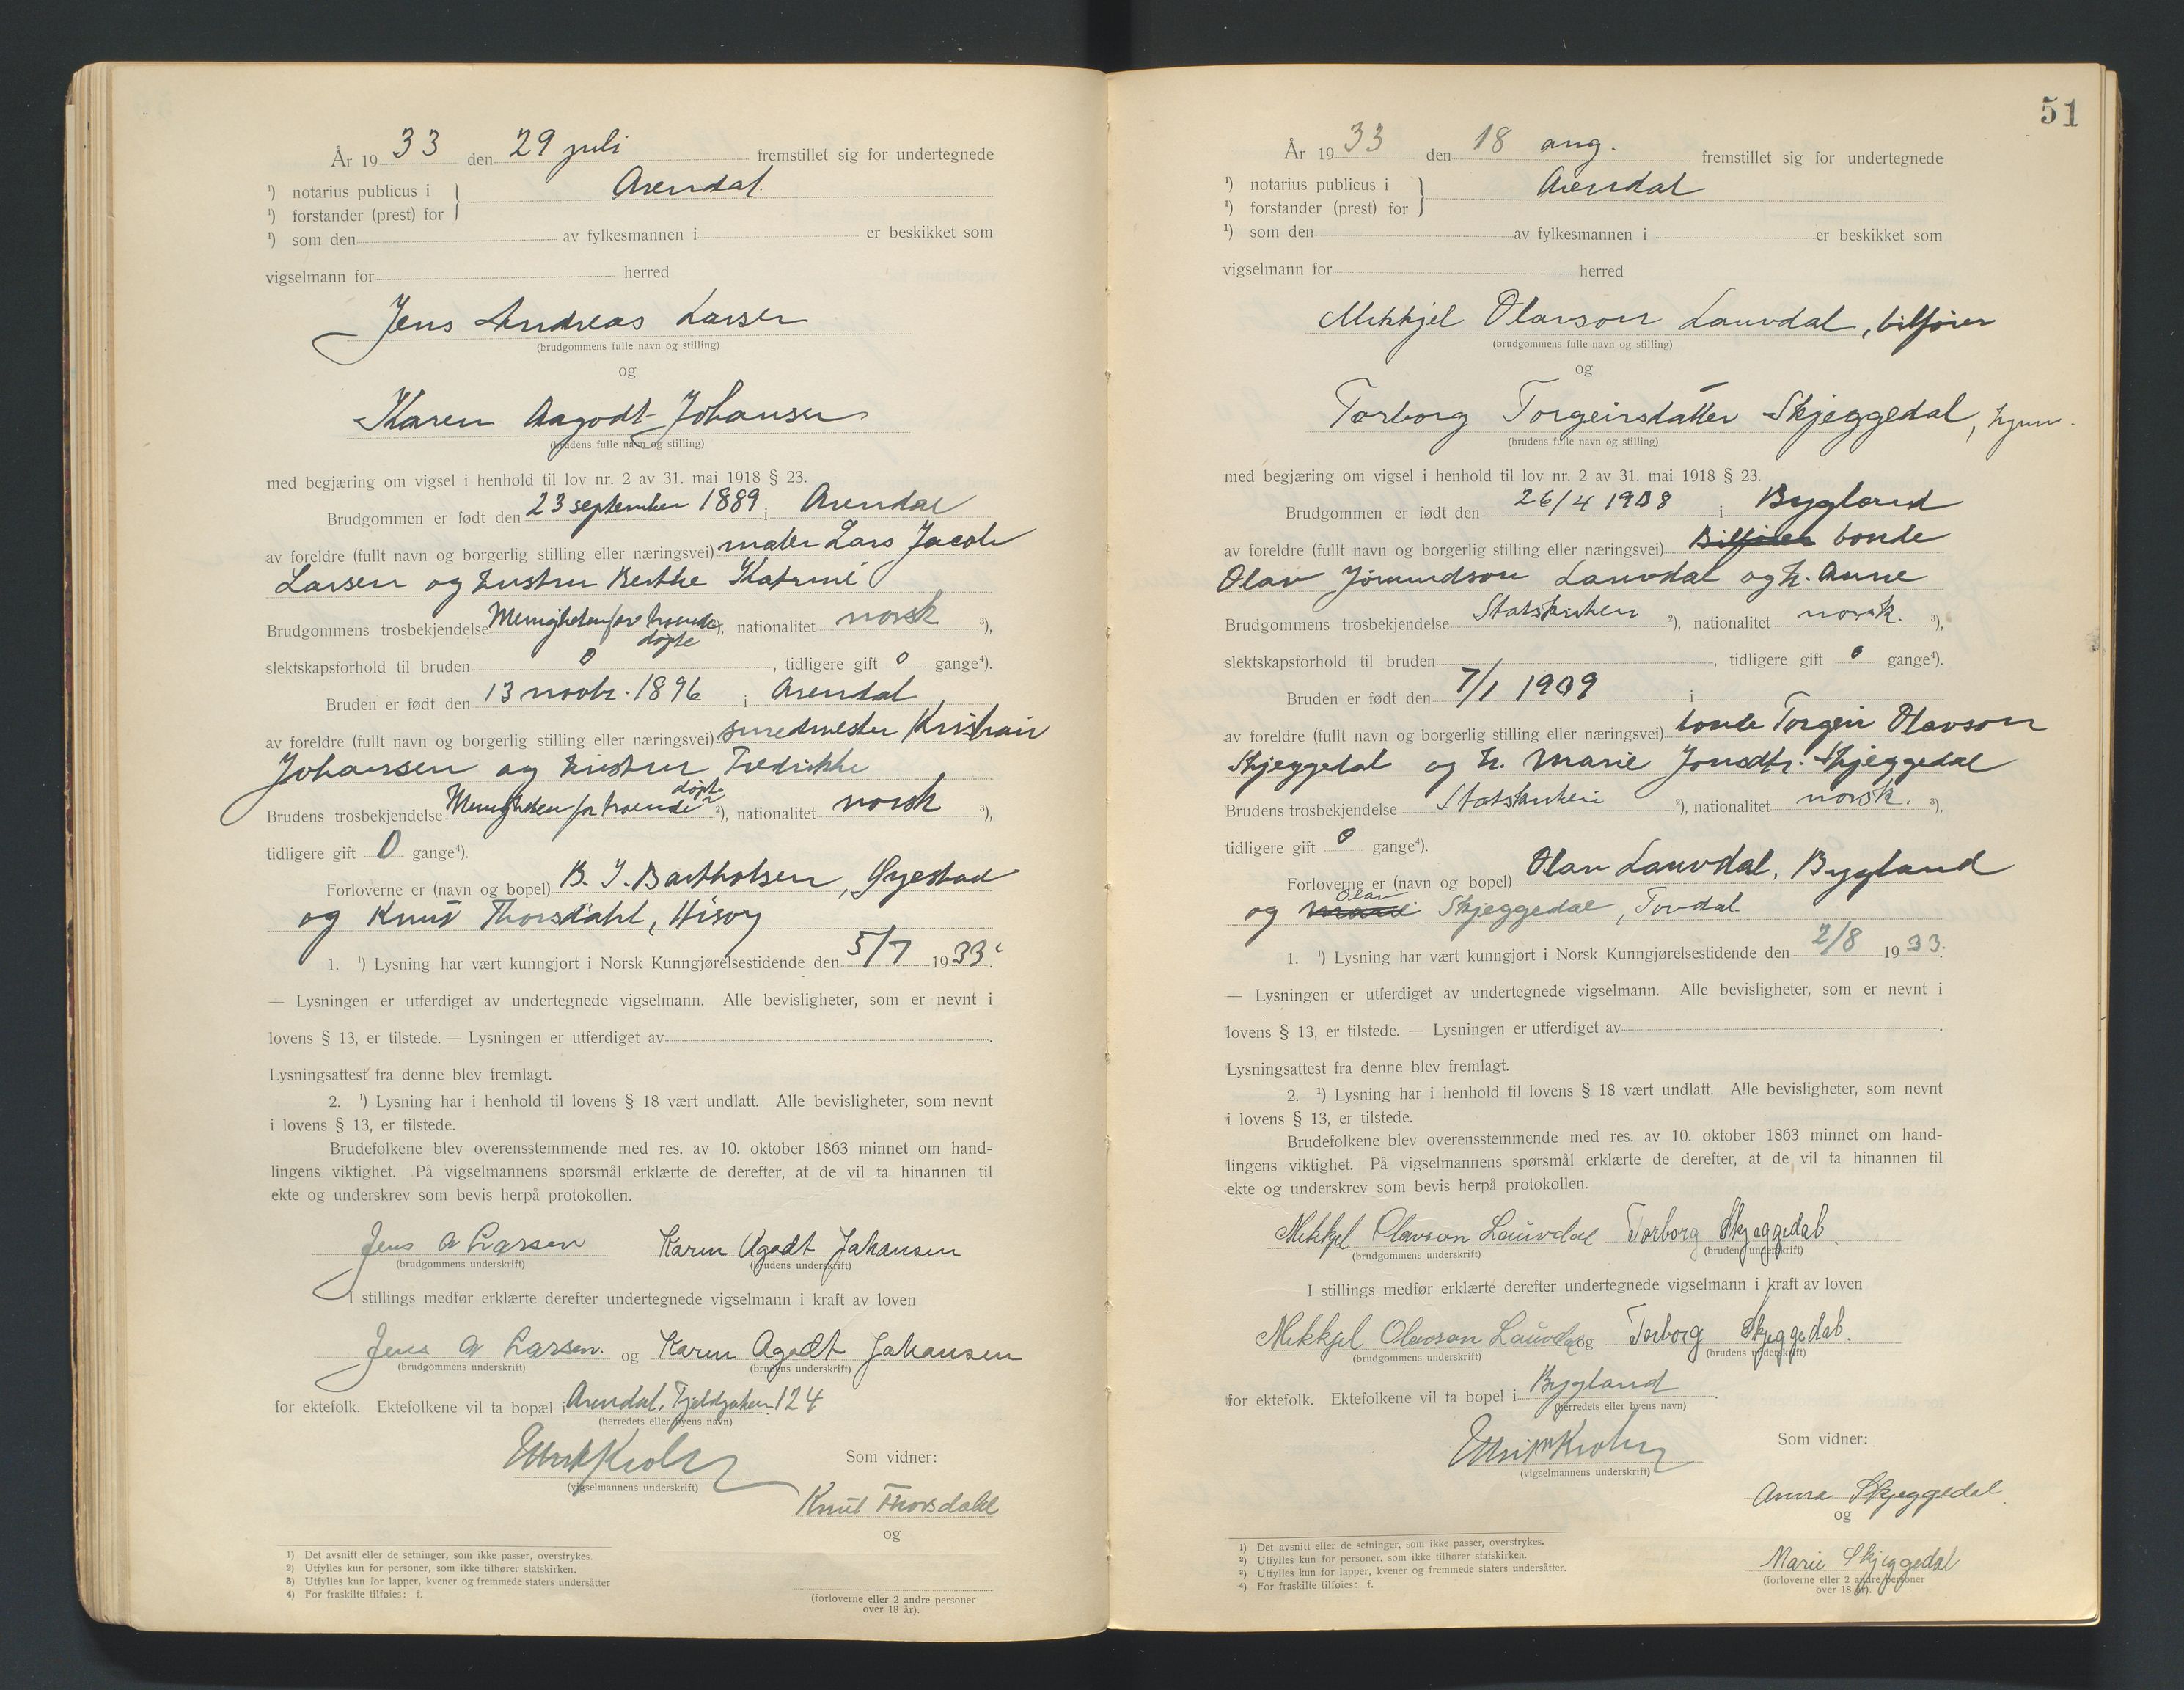 År 19 33 den 29 juli fremstillet sig for undertegnede
¹) notarius publicus i } Arendal.
¹) forstander (prest) for
¹) som den av fylkesmannen i er beskikket som
vigselmann for herred
Jens Andreas Larsen
(brudgommens fulle navn og stilling)
og
Karen Aagodt Johansen
(brudens fulle navn og stilling)
med begjæring om vigsel i henhold til lov nr. 2 av 31. mai 1918 § 23.
Brudgommen er født den 23 september 1889 i Arendal
av foreldre (fullt navn og borgerlig stilling eller næringsvei) maler Lars Jacob
Larsen og hustru Berthe Katrine
Brudgommens trosbekjendelse Menigheten for troende døpte ²), nationalitet norsk ³),
slektskapsforhold til bruden 0, tidligere gift 0 gange⁴).
Bruden er født den 13 novbr. 1896 i Arendal
av foreldre (fullt navn og borgerlig stilling eller næringsvei) smedmester Kristian
Johansen og hustru Fredrikke
Brudens trosbekjendelse Menigheten for troende døpte ²), nationalitet norsk ³),
tidligere gift 0 gange⁴).
Forloverne er (navn og bopel) B. J. Bartholsen, Øyestad
og Knut Thorsdahl, Hisøy
1. ¹) Lysning har vært kunngjort i Norsk Kunngjørelsestidende den 5/7 1933.
— Lysningen er utferdiget av undertegnede vigselmann. Alle bevisligheter, som er nevnt i
lovens § 13, er tilstede. — Lysningen er utferdiget av .
Lysningsattest fra denne blev fremlagt.
2. ¹) Lysning har i henhold til lovens § 18 vært undlatt. Alle bevisligheter, som nevnt
i lovens § 13, er tilstede.
Brudefolkene blev overensstemmende med res. av 10. oktober 1863 minnet om hand-
lingens viktighet. På vigselmannens spørsmål erklærte de derefter, at de vil ta hinannen til
ekte og underskrev som bevis herpå protokollen.
Jens A Larsen Karen Agodt Johansen
(brudgommens underskrift) (brudens underskrift)
I stillings medfør erklærte derefter undertegnede vigselmann i kraft av loven
Jens A Larsen. og Karen Agodt Johansen
(brudgommens underskrift) (brudens underskrift)
for ektefolk. Ektefolkene vil ta bopæl i Arendal, Fjeldgaten 124
(herredets eller byens navn)
(vigselmannens underskrift)
Som vidner:
Knut Thorsdahl
og
(forloverne eller 2 andre personer
over 18 år).
1) Det avsnitt eller de setninger, som ikke passer, overstrykes.
2) Utfylles kun for personer, som ikke tilhører statskirken.
3) Utfylles kun for lapper, kvener og fremmede staters undersåtter
4) For fraskilte tilføies: f.
51
År 19 33 den 18 aug. fremstillet sig for undertegnede
¹) notarius publicus i } Arendal
¹) forstander (prest) for
¹) som den av fylkesmannen i er beskikket som
vigselmann for herred
Mikkjel Olavson Lauvdal, bilfører
(brudgommens fulle navn og stilling)
og
Torborg Torgeirsdatter Skjeggedal, hjem.
(brudens fulle navn og stilling)
med begjæring om vigsel i henhold til lov nr. 2 av 31. mai 1918 § 23.
Brudgommen er født den 26/4 1908 i Bygland
av foreldre (fullt navn og borgerlig stilling eller næringsvei) Bilfører bonde
Olav Jørundson Lauvdal og h. Anne
Brudgommens trosbekjendelse Statskirken ²), nationalitet norsk. ³),
slektskapsforhold til bruden , tidligere gift 0 gange⁴).
Bruden er født den 7/1 1909 i
av foreldre (fullt navn og borgerlig stilling eller næringsvei) bonde Torgeir Olavson
Skjeggedal og h. Marie Jonsdtr. Skjeggedal
Brudens trosbekjendelse Statskirken ²), nationalitet norsk. ³),
tidligere gift 0 gange⁴).
Forloverne er (navn og bopel) Olav Lauvdal, Bygland
og Marie Olav Skjeggedal, Tovdal.
1. ¹) Lysning har vært kunngjort i Norsk Kunngjørelsestidende den 2/8 1933.
— Lysningen er utferdiget av undertegnede vigselmann. Alle bevisligheter, som er nevnt i
lovens § 13, er tilstede. — Lysningen er utferdiget av .
Lysningsattest fra denne blev fremlagt.
2. ¹) Lysning har i henhold til lovens § 18 vært undlatt. Alle bevisligheter, som nevnt
i lovens § 13, er tilstede.
Brudefolkene blev overensstemmende med res. av 10. oktober 1863 minnet om hand-
lingens viktighet. På vigselmannens spørsmål erklærte de derefter, at de vil ta hinannen til
ekte og underskrev som bevis herpå protokollen.
Mikkjel Olavson Lauvdal Torborg Skjeggedal.
(brudgommens underskrift) (brudens underskrift)
I stillings medfør erklærte derefter undertegnede vigselmann i kraft av loven
Mikkjel Olavson Lauvdal og Torborg Skjeggedal.
(brudgommens underskrift) (brudens underskrift)
for ektefolk. Ektefolkene vil ta bopel i Bygland .
(herredets eller byens navn)
(vigselmannens underskrift)
Som vidner:
Anna Skjeggedal.
og
Marie Skjeggedal
(forloverne eller 2 andre personer
over 18 år).
1) Det avsnitt eller de setninger, som ikke passer, overstrykes.
2) Utfylles kun for personer, som ikke tilhører statskirken.
3) Utfylles kun for lapper, kvener og fremmede staters undersåtter.
4) For fraskilte tilføies: f.